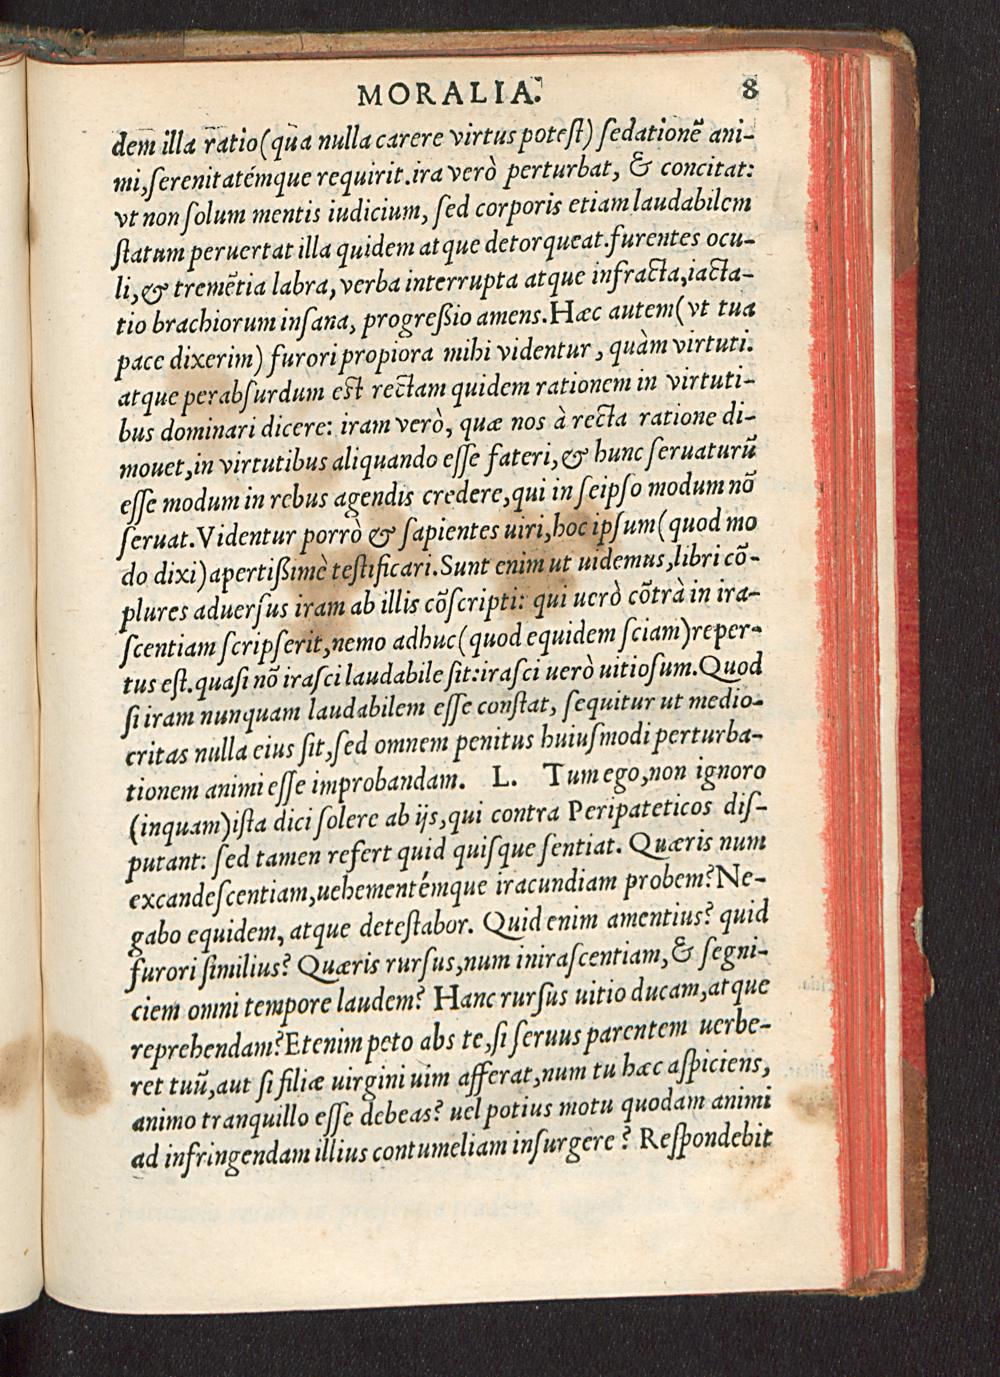 MORALIA. 8
dem illa ratio (qua nulla carere virtus potest) sedationē ani-
mi, serenitatémque requirit. ira verò perturbat, & concitat:
vt non solum mentis iudicium, sed corporis etiam laudabilem
statum peruertat illa quidem atque detorqueat. furentes ocu-
li, & tremētia labra, verba interrupta atque infracta, iacta-
tio brachiorum insana, progreßio amens. Hæc autem (vt tua
pace dixerim) furori propiora mihi videntur, quàm virtuti.
atque perabsurdum est rectam quidem rationem in virtuti-
bus dominari dicere: iram verò, quæ nos à recta ratione di-
mouet, in virtutibus aliquando esse fateri, & hunc seruaturū
esse modum in rebus agendis credere, qui in seipso modum nō
seruat. Videntur porrò & sapientes uiri, hoc ipsum (quod mo
do dixi) apertißimè testificari. Sunt enim ut uidemus, libri cō-
plures aduersus iram ab illis cōscripti: qui uerò cōtrà in ira-
scentiam scripserit, nemo adhuc (quod equidem sciam) reper-
tus est. quasi nō irasci laudabile sit: irasci uerò uitiosum. Quod
si iram nunquam laudabilem esse constat, sequitur ut medio-
critas nulla eius sit, sed omnem penitus huiusmodi perturba-
tionem animi esse improbandam. L. Tum ego, non ignoro
(inquam) ista dici solere ab ijs, qui contra Peripateticos dis-
putant: sed tamen refert quid quisque sentiat. Quæris num
excandescentiam, uehementémque iracundiam probem? Ne-
gabo equidem, atque detestabor. Quid enim amentius? quid
furori similius? Quæris rursus, num inirascentiam, & segni-
ciem omni tempore laudem? Hanc rursus uitio ducam, atque
reprehendam? Etenim peto abs te, si seruus parentem uerbe-
ret tuū, aut si filiæ uirgini uim afferat, num tu hæc aspiciens,
animo tranquillo esse debeas? uel potius motu quodam animi
ad infringendam illius contumeliam insurgere? Respondebit